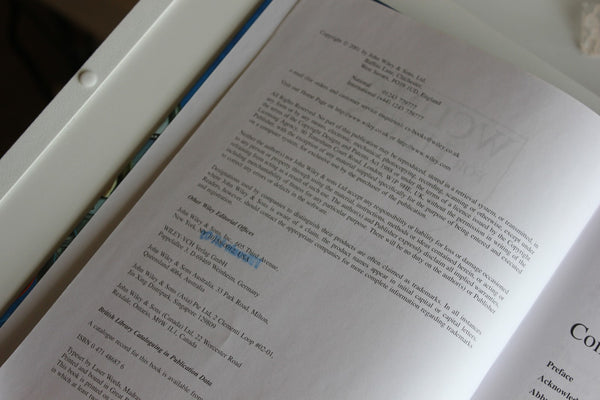 Copyright © 2001 by John Wiley & Sons, Ltd.
Baffins Lane, Chichester,
West Sussex, PO19 1UD, England
National 01243 779777
International (+44) 1243 779777
e-mail (for orders and customer service enquiries): cs-books@wiley.co.uk
Visit our Home Page on http://www.wiley.co.uk or http://www.wiley.com
All Rights Reserved. No part of this publication may be reproduced, stored in a retrieval system, or transmitted, in
any form or by any means, electronic, mechanical, photocopying, recording, scanning or otherwise, except under
the terms of the Copyright Designs and Patents Act 1988 or under the terms of a licence issued by the Copyright
Licensing Agency, 90 Tottenham Court Road, London, W1P 9HE, UK, without the permission in writing of the Publisher,
with the exception of any material supplied specifically for the purpose of being entered and executed
on a computer system, for exclusive use by the purchaser of the publication.
Neither the author(s) nor John Wiley & Sons Ltd accept any responsibility or liability for loss or damage occasioned
to any person or property through using the material, instructions, methods or ideas contained herein, or acting or
refraining from acting as a result of such use. The author(s) and Publisher expressly disclaim all implied warranties,
including merchantability of fitness for any particular purpose. There will be no duty on the author(s) or Publisher
to correct any errors or defects in the software.
Designations used by companies to distinguish their products are often claimed as trademarks. In all instances
where John Wiley & Sons is aware of a claim, the product names appear in initial capital or capital letters.
Readers, however, should contact the appropriate companies for more complete information regarding trademarks
and registration.
Other Wiley Editorial Offices
John Wiley & Sons, Inc., 605 Third Avenue,
New York, NY 10158-0012, USA
WILEY-VCH Verlag GmbH
Pappelallee 3, D-69469 Weinheim, Germany
John Wiley & Sons Australia, 33 Park Road, Milton,
Queensland 4064, Australia
John Wiley & Sons (Asia) Pte Ltd, 2 Clementi Loop #02-01,
Jin Xing Distripark, Singapore 129809
John Wiley & Sons (Canada) Ltd, 22 Worcester Road
Rexdale, Ontario, M9W 1L1, Canada
British Library Cataloguing in Publication Data
A catalogue record for this book is available from
ISBN 0 471 48687 6
Typeset by Laser Words, Madras
Printed and bound in Great
This book is printed on
in which at least two
Con
Preface
Acknowled
Abb